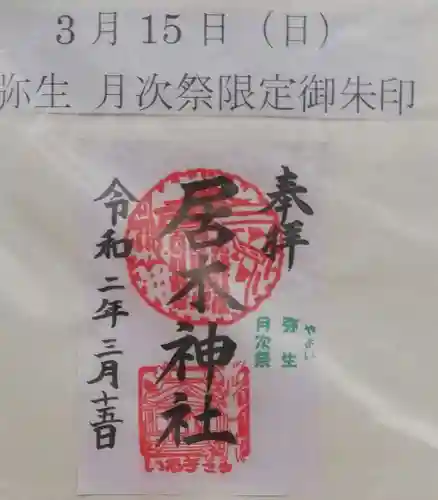 3月15日（日）
弥生 月次祭限定御朱印
奉拝
居木神社
令和二年三月十五日
やよい
弥生
月次祭